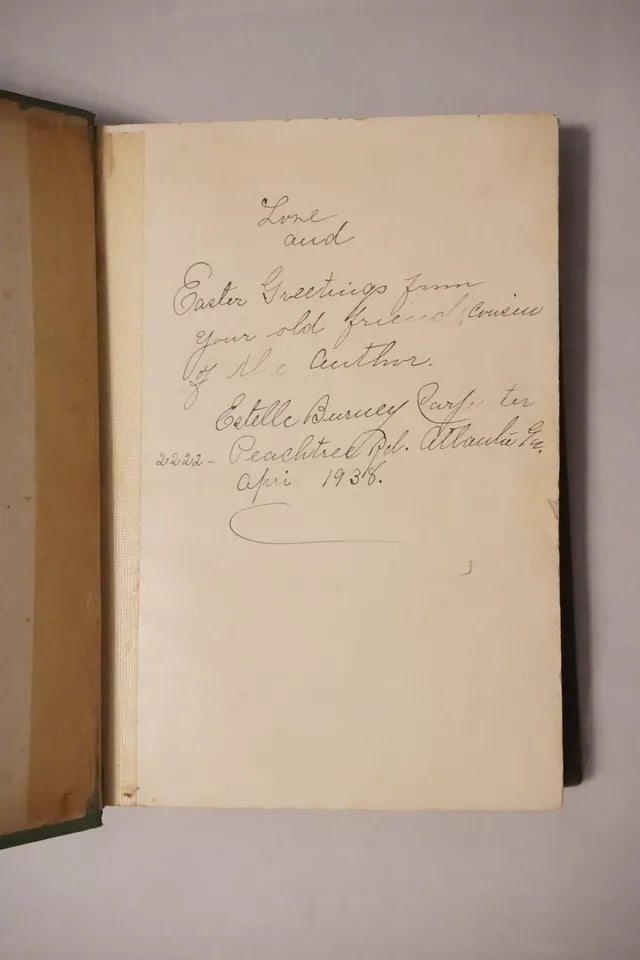 Love
and
Easter Greetings from
your old friend, cousin
of the author.
Estelle Burney Carpenter
2222 - Peachtree Rd. Atlanta Ga.
April 1938.